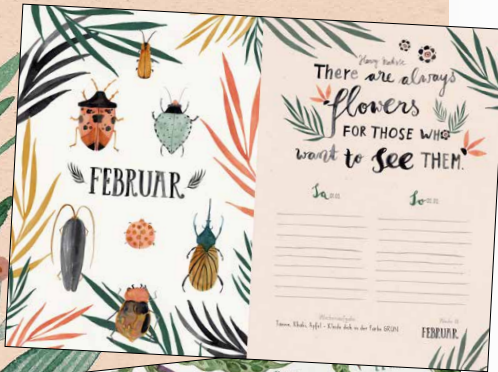 FEBRUAR
There are always
flowers
FOR THOSE WHO
want to see THEM."
Sa
So
Tanne, Khaki, Apfel - Kleide dich in der Farbe GRÜN.
FEBRUAR